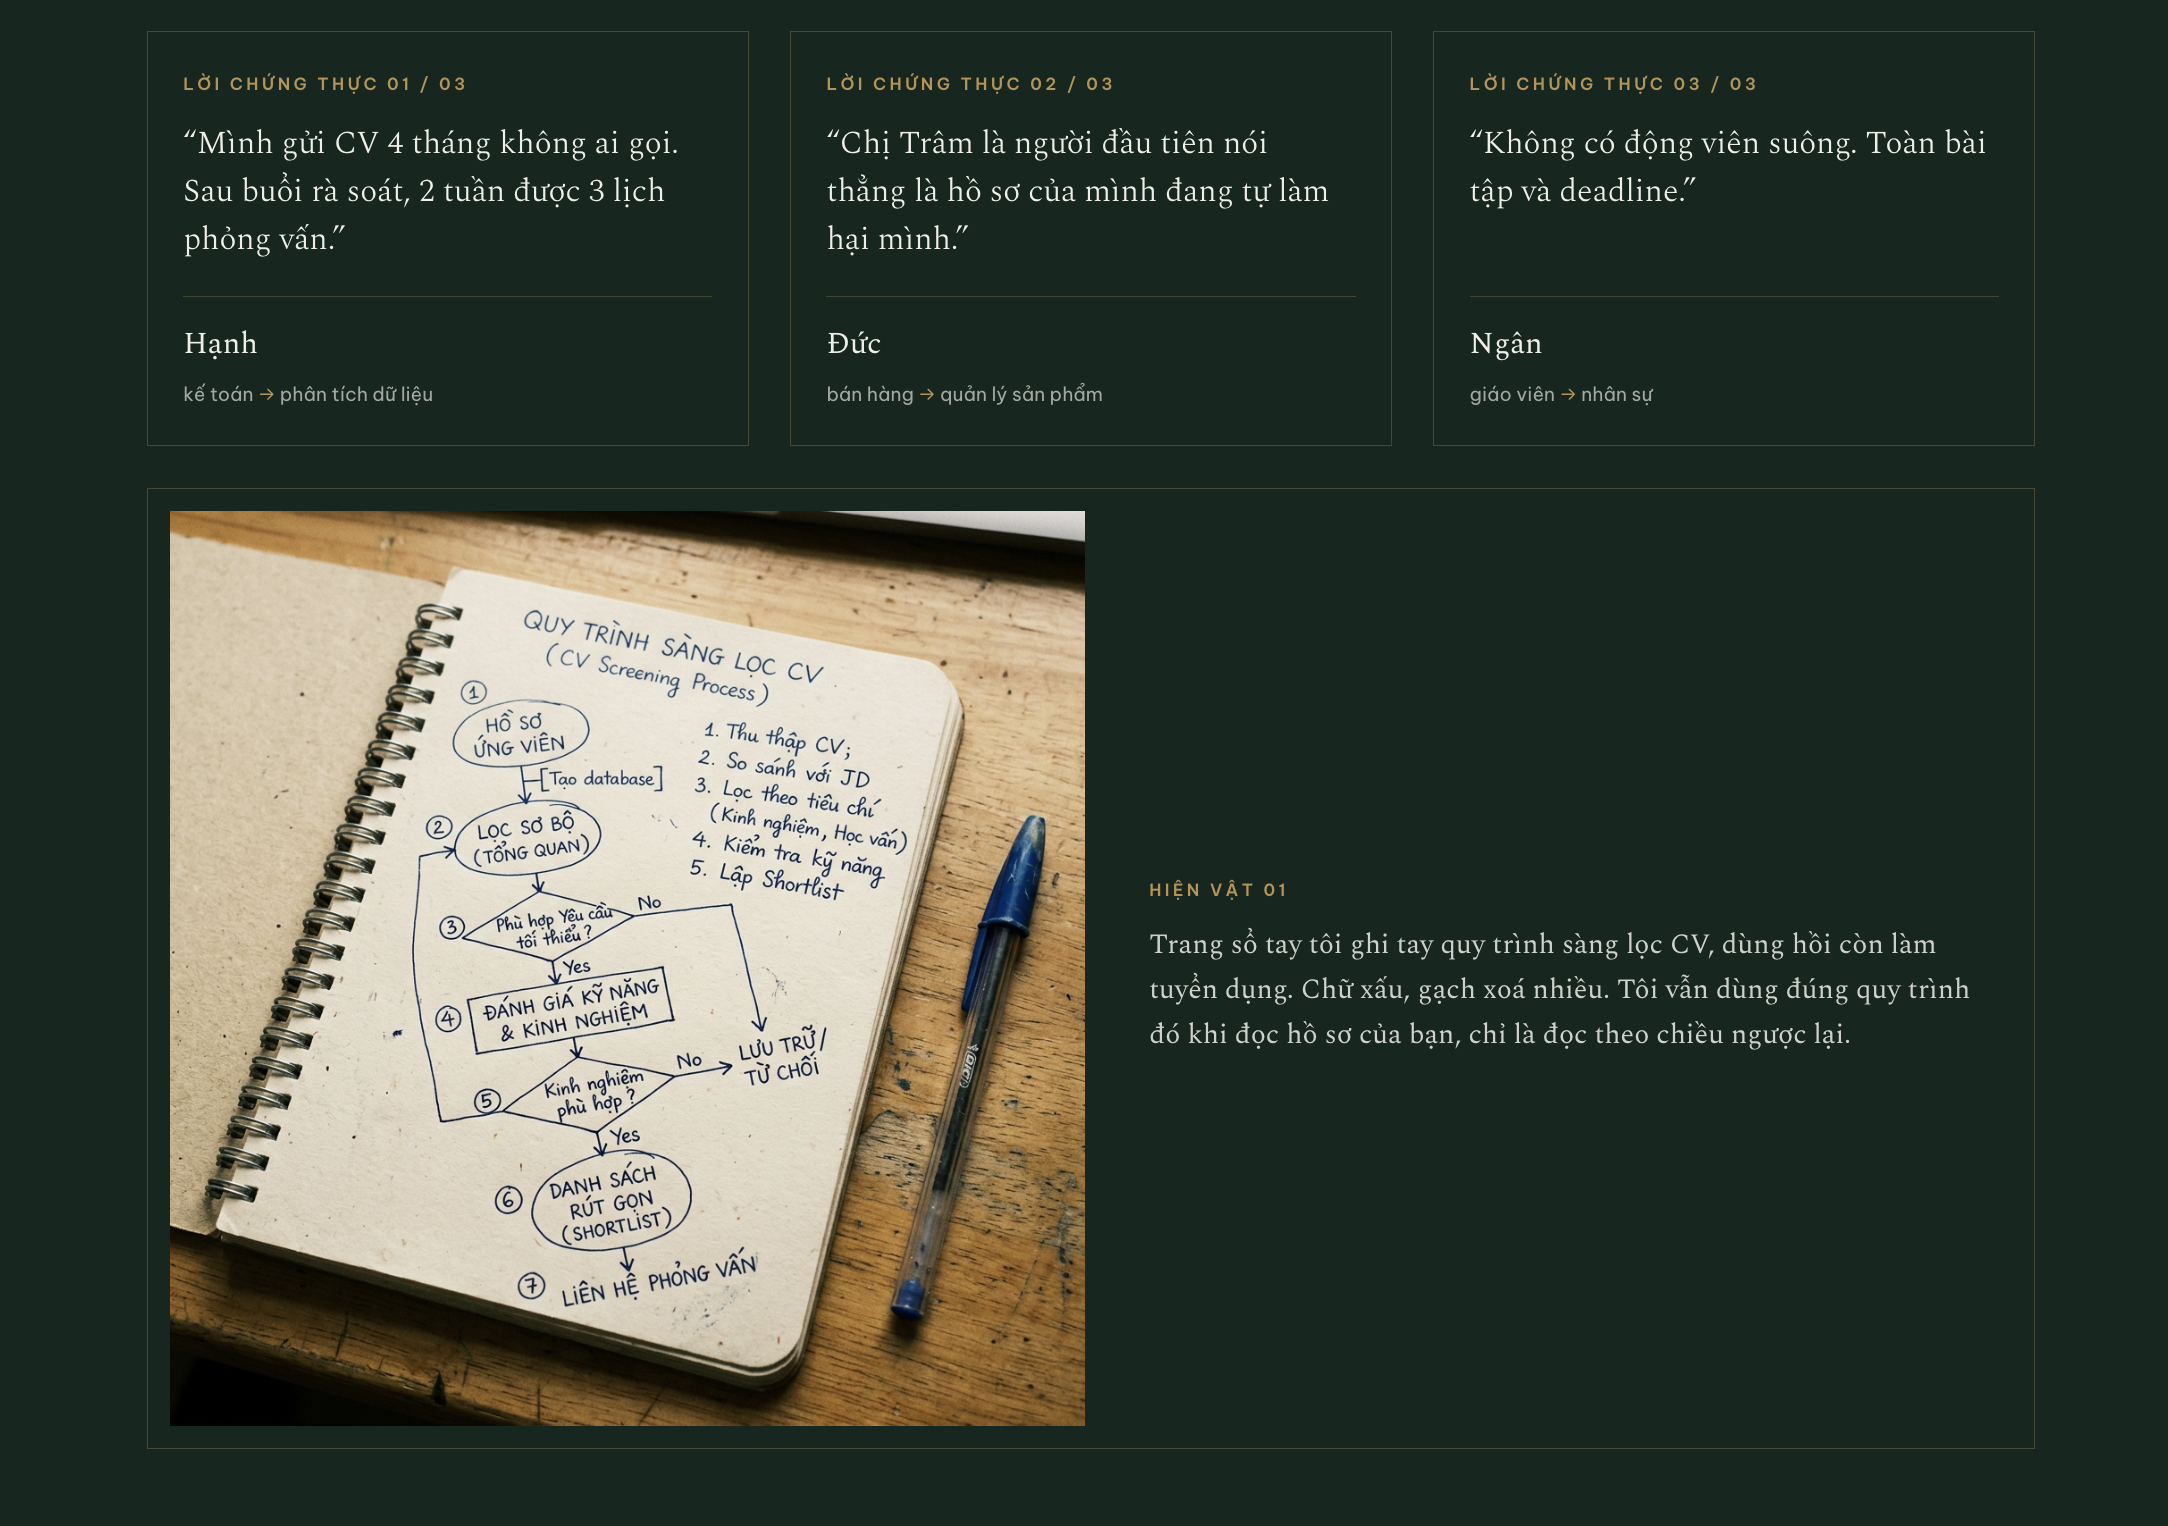 LỜI CHỨNG THỰC 01 / 03
“Mình gửi CV 4 tháng không ai gọi.
Sau buổi rà soát, 2 tuần được 3 lịch
phỏng vấn.”
Hạnh
kế toán → phân tích dữ liệu
LỜI CHỨNG THỰC 02 / 03
“Chị Trâm là người đầu tiên nói
thẳng là hồ sơ của mình đang tự làm
hại mình.”
Đức
bán hàng → quản lý sản phẩm
LỜI CHỨNG THỰC 03 / 03
“Không có động viên suông. Toàn bài
tập và deadline.”
Ngân
giáo viên → nhân sự
QUY TRÌNH SÀNG LỌC CV
(CV Screening Process)
1
HỒ SƠ
ỨNG VIÊN
[Tạo database]
2
LỌC SƠ BỘ
(TỔNG QUAN)
3
Phù hợp Yêu cầu
tối thiểu?
No
Yes
4
ĐÁNH GIÁ KỸ NĂNG
& KINH NGHIỆM
5
Kinh nghiệm
phù hợp?
No
LƯU TRỮ/
TỪ CHỐI
Yes
6
DANH SÁCH
RÚT GỌN
(SHORTLIST)
7
LIÊN HỆ PHỎNG VẤN
1. Thu thập CV;
2. So sánh với JD
3. Lọc theo tiêu chí
(Kinh nghiệm, Học vấn)
4. Kiểm tra kỹ năng
5. Lập Shortlist
BIC
HIỆN VẬT 01
Trang sổ tay tôi ghi tay quy trình sàng lọc CV, dùng hồi còn làm
tuyển dụng. Chữ xấu, gạch xoá nhiều. Tôi vẫn dùng đúng quy trình
đó khi đọc hồ sơ của bạn, chỉ là đọc theo chiều ngược lại.